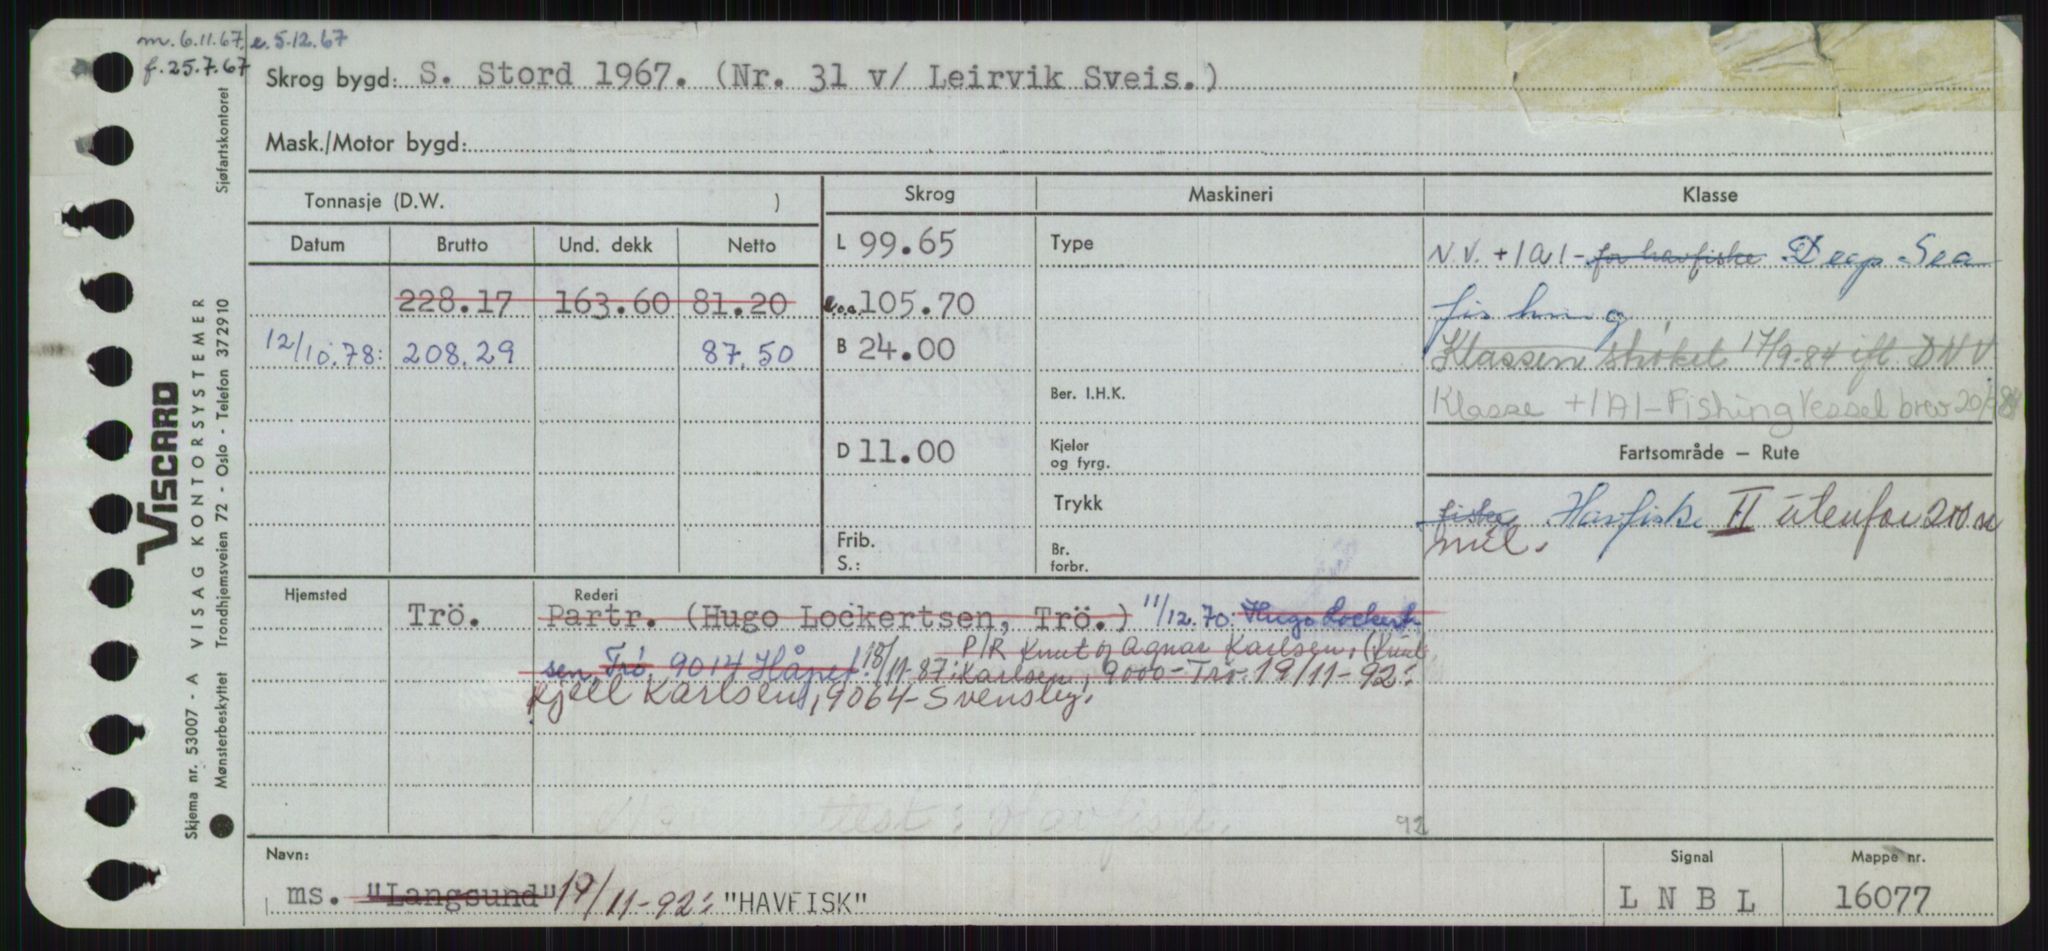 m. 6.11.67, e. 5.12.67
f. 25.7.67
Skrog bygd: S. Stord 1967. (Nr. 31 v/ Leirvik Sveis.)
Mask./Motor bygd:
Tonnasje (D.W. )
Skrog
Maskineri
Klasse
Datum
Brutto
Und. dekk
Netto
228.17 163.60 81.20
12/10.78: 208.29 87.50
L 99.65
L.o.a. 105.70
B 24.00
D 11.00
Frib.
S.:
Type
Ber. I.H.K.
Kjeler
og fyrg.
Trykk
Br.
forbr.
N.V. +1A1- for havfiske Deep Sea
fishing
Klassen strøket 17/9-84 ifl. DNV.
Klasse +1A1-Fishing Vessel brev 20/9
Fartsområde – Rute
fiske Havfiske II utenfor 200 n
mil.
Hjemsted
Rederi
Trö. Partr. (Hugo Lockertsen, Trö.) 11/12.70: Hugo Lockert-
sen, Trö, 9014 Håpet. 18/11-87: P/R Knut og Agnar Karlsen, (Knut
Karlsen, 9000-Trö 19/11-92:
Kjell Karlsen, 9064-Svensby.
92
Navn:
ms. "Langsund" 19/11-92: "HAVFISK"
Signal
LNBL
Mappe nr.
16077
Sjøfartskontoret
VISCARD
VISAG KONTORSYSTEMER
Trondhjemsveien 72 - Oslo - Telefon 372910
Skjema nr. 53007 - A
Mønsterbeskyttet